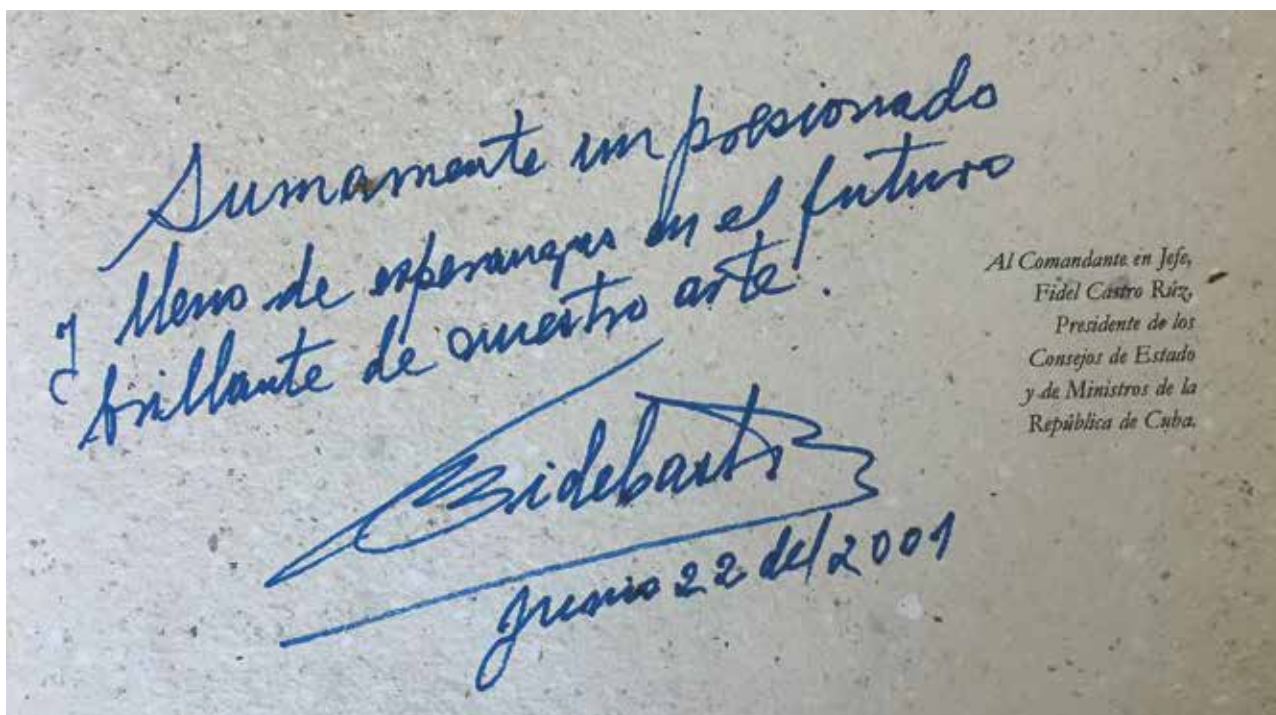 Sumamente impresionado
y lleno de esperanzas en el futuro
brillante de nuestro arte.
Junio 22 del 2001
Al Comandante en Jefe,
Fidel Castro Rúz,
Presidente de los
Consejos de Estado
y de Ministros de la
República de Cuba.